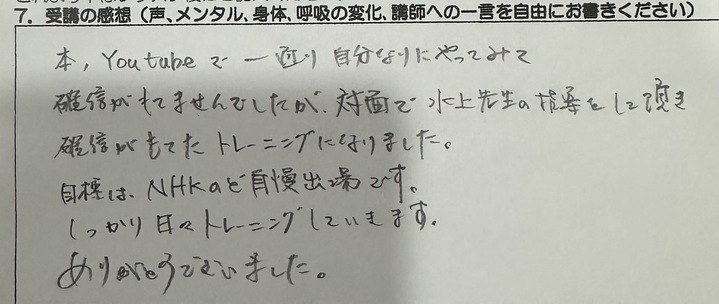 7. 受講の感想（声、メンタル、身体、呼吸の変化、講師への一言を自由にお書きください）
本，Youtubeで一通り自分なりにやってみて
確信がもてませんでしたが、対面で水上先生の指導をして頂き
確信がもてたトレーニングになりました。
目標は、NHKのど自慢出場です。
しっかり日々トレーニングしていきます。
ありがとうございました。